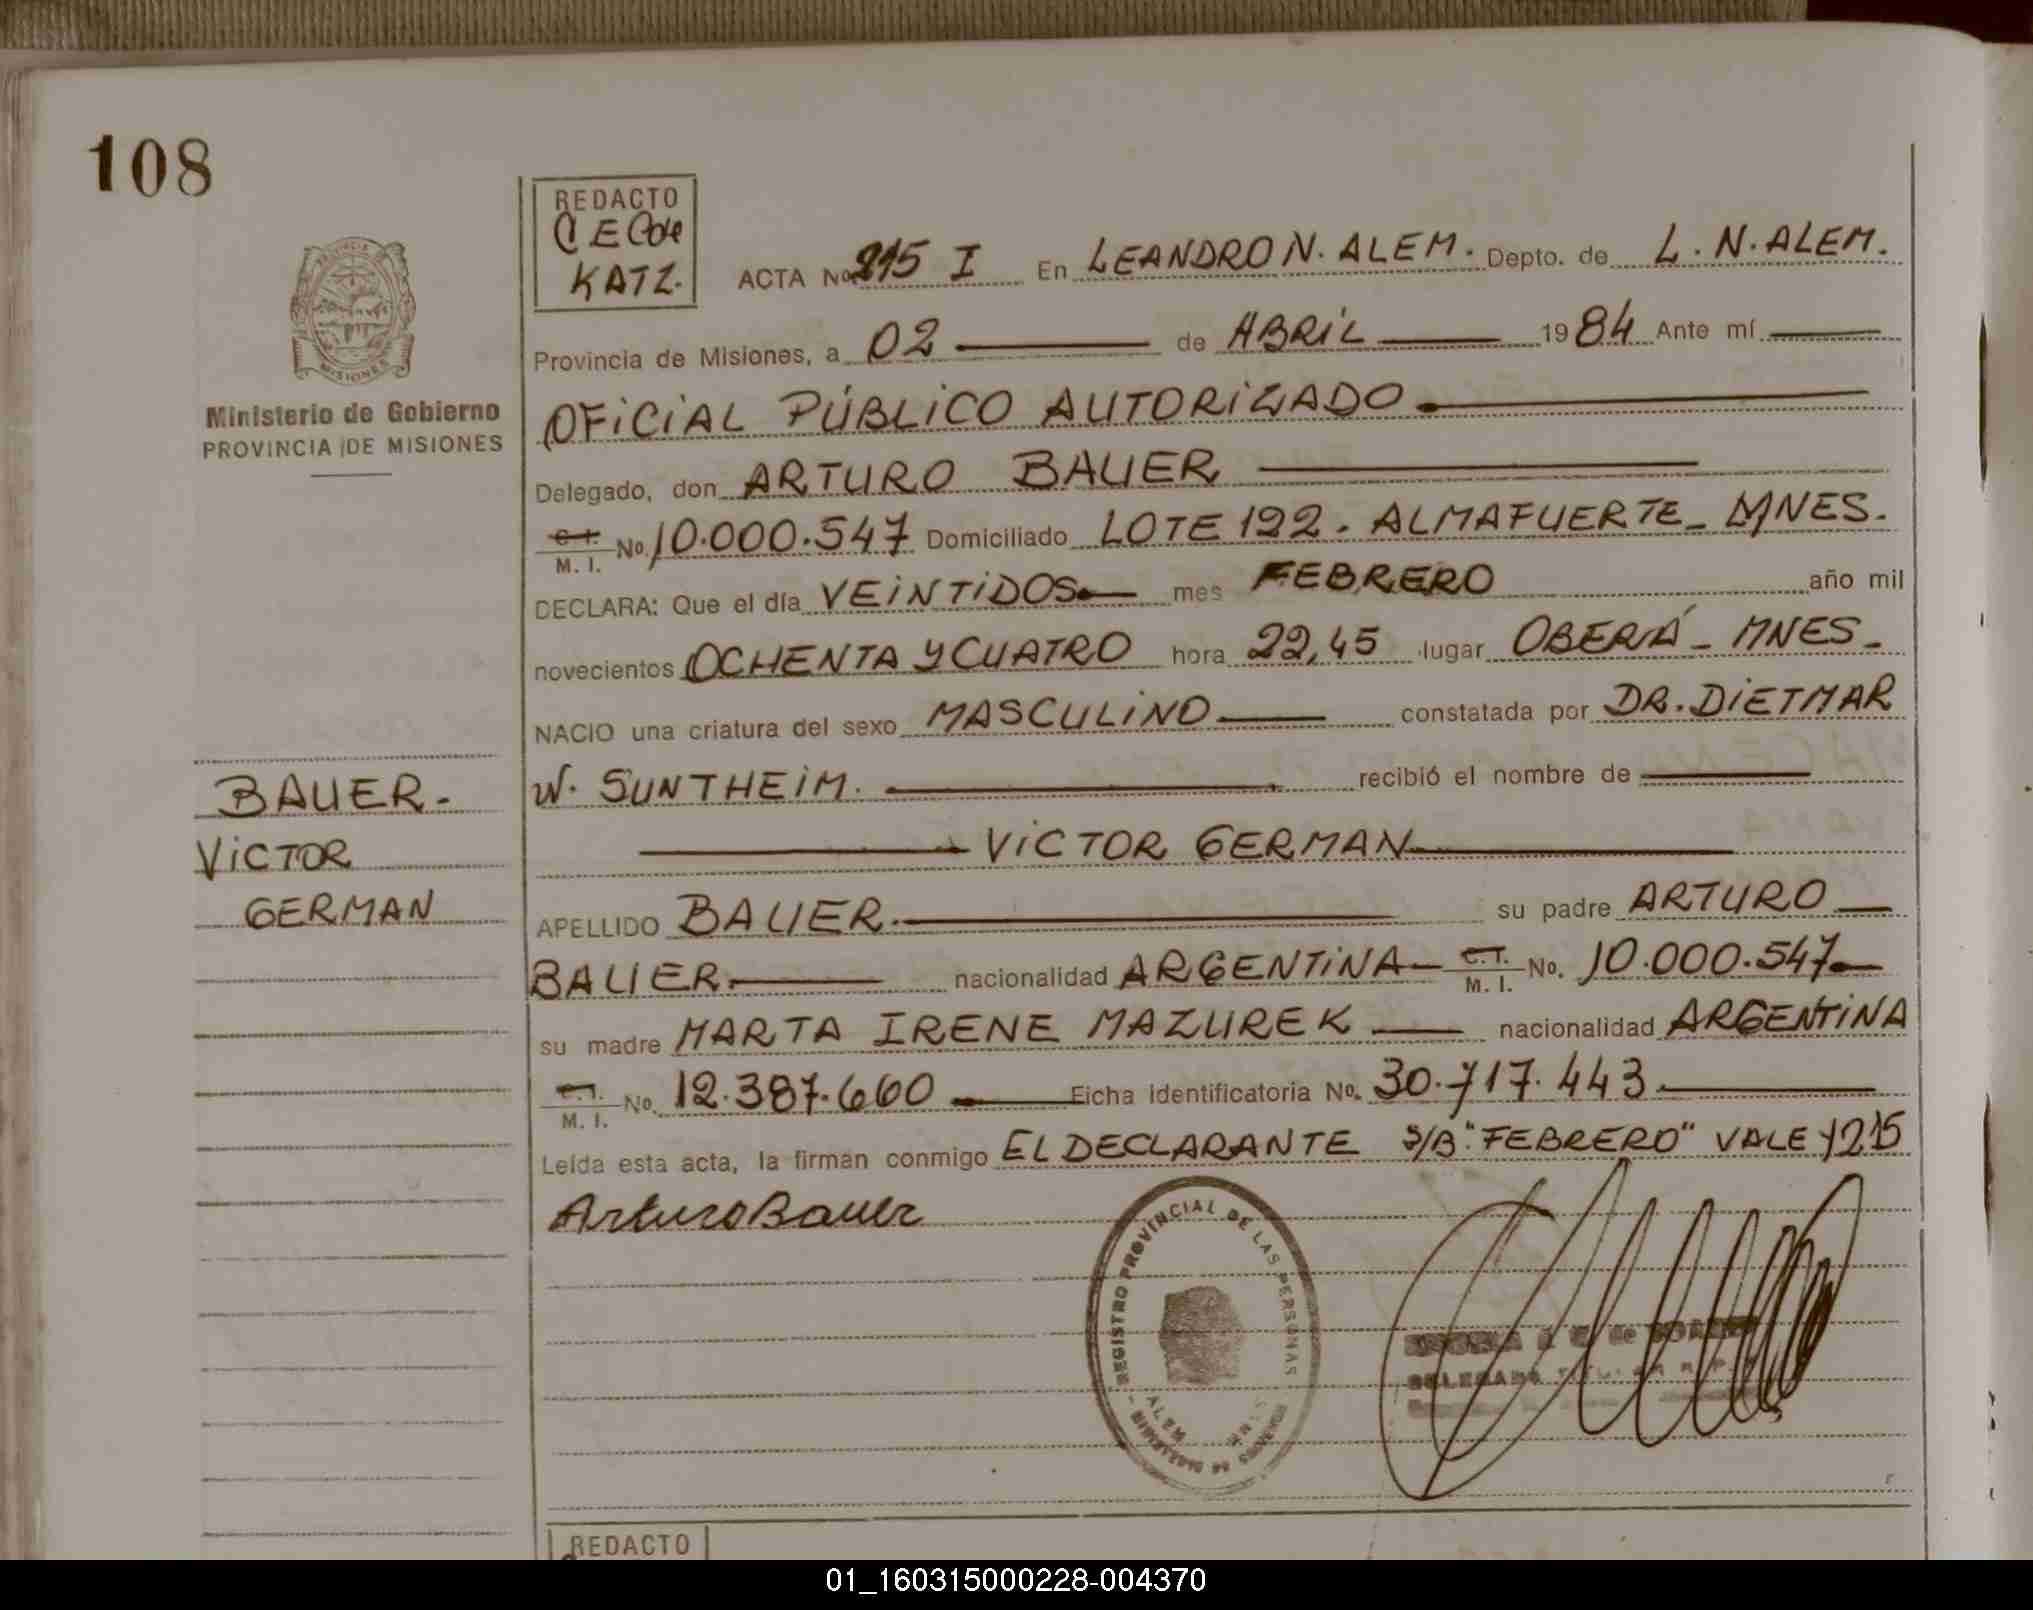 108
REDACTO
KATZ.
ACTA No. 215 I En LEANDRO N. ALEM. Depto. de L. N. ALEM.
Provincia de Misiones, a 02 de ABRIL 1984 Ante mí
Ministerio de Gobierno
PROVINCIA DE MISIONES
OFICIAL PÚBLICO AUTORIZADO
Delegado, don ARTURO BAUER
C. I.
M. I. No. 10.000.547 Domiciliado LOTE 122. ALMAFUERTE - MNES.
DECLARA: Que el día VEINTIDOS mes FEBRERO año mil
novecientos OCHENTA Y CUATRO hora 22,45 lugar OBERÁ - MNES -
NACIO una criatura del sexo MASCULINO constatada por DR. DIETMAR
W. SUNTHEIM. recibió el nombre de
VICTOR GERMAN
BAUER -
VICTOR
GERMAN
APELLIDO BAUER. su padre ARTURO
BAUER. nacionalidad ARGENTINA C. I.
M. I. No. 10.000.547
su madre MARTA IRENE MAZUREK nacionalidad ARGENTINA
C. I.
M. I. No. 12.387.660 Ficha identificatoria No. 30.717.443
Leída esta acta, la firman conmigo EL DECLARANTE S/B "FEBRERO" VALE Y 215
Arturo Bauer
REGISTRO PROVINCIAL DE LAS PERSONAS
ALEM
REDACTO
01_160315000228-004370